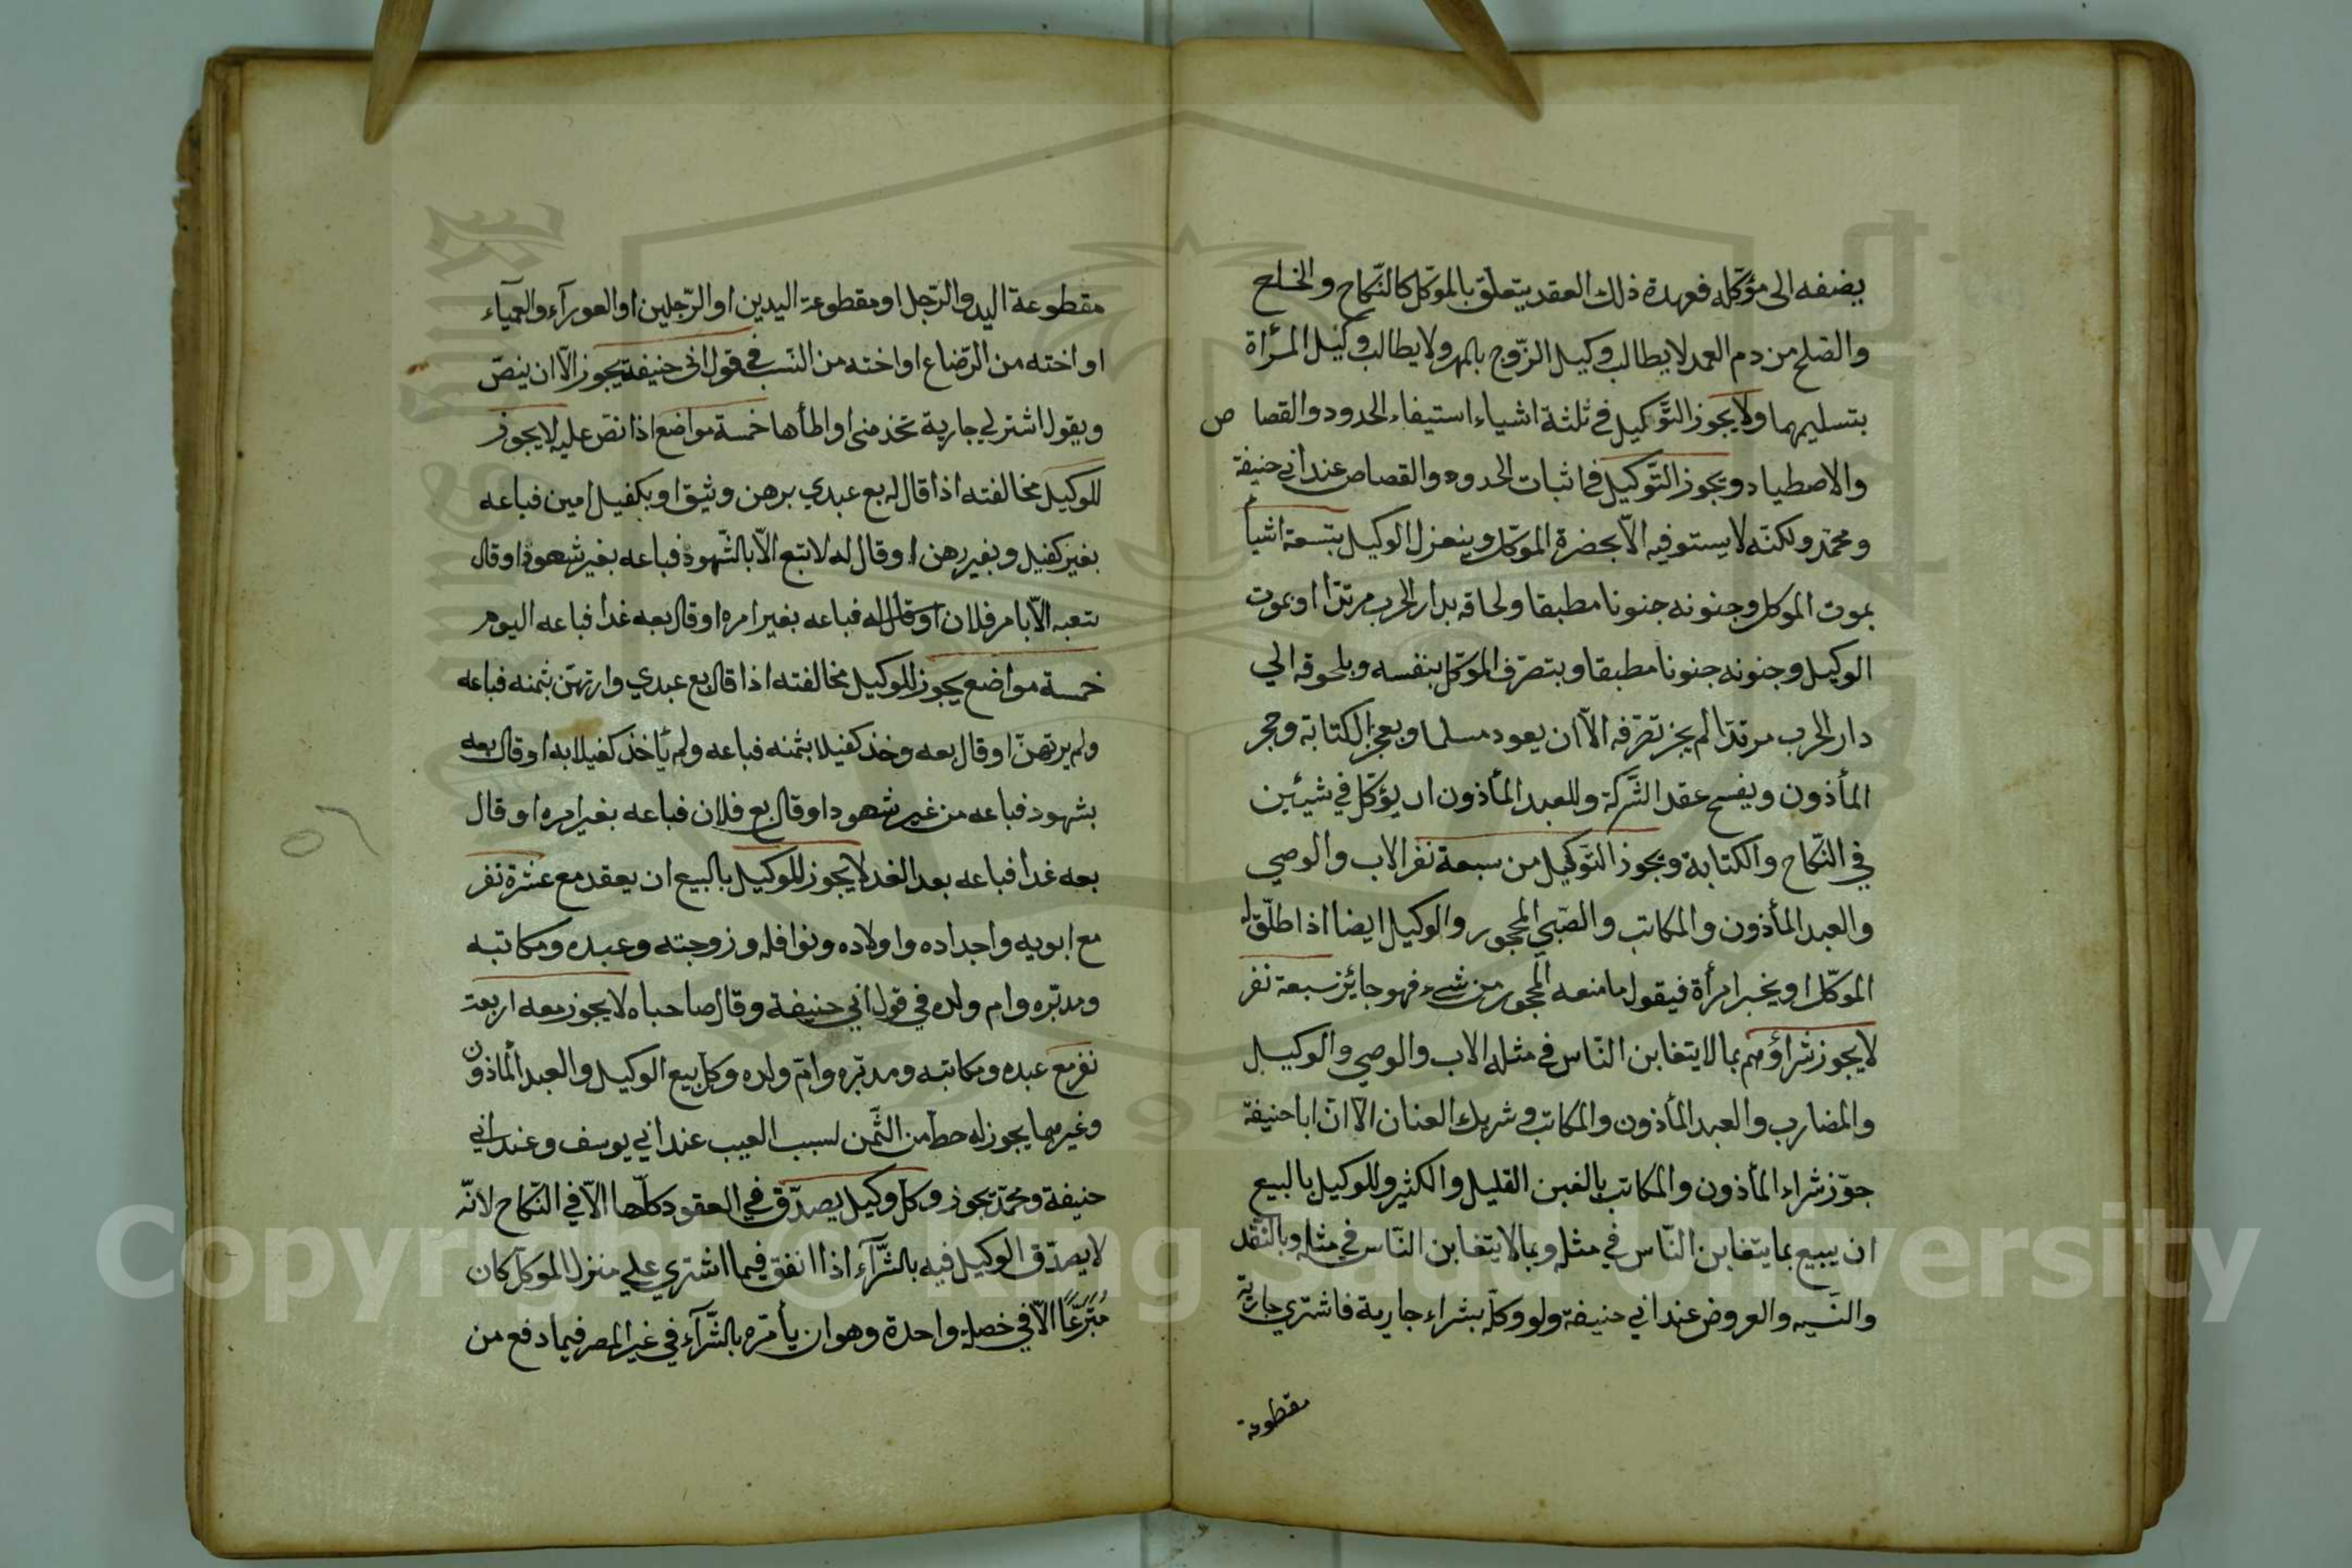 يضفه الى مؤكّله فعهدة ذلك العقد يتعلّق بالموكّل كالنّكاح والخلع
والصّلح من دم العمد لا يطالب وكيل الزّوج بالمهر ولا يطالب وكيل المرأة
بتسليمها ولا يجوز التّوكيل في ثلثة اشياء استيفاء الحدود والقصا ص
والاصطياد ويجوز التّوكيل في اثبات الحدود والقصاص عند ابي حنيفة
ومحمّد ولكنّه لا يستوفيه الّا بحضرة الموكّل وينعزل الوكيل بتسعة اشيأ
بموت الموكل وجنونه جنونا مطبقا ولحاقه بدار الحرب مرتدّا او بموت
الوكيل وجنونه جنونا مطبقا وبتصرّف الموكّل بنفسه وبلحوقه الي
دار الحرب مرتدّا لم يجز تصرّفه الّا ان يعود مسلما وبعجز الكتابة وحجر
المأذون وبفسخ عقد الشّركة وللعبد المأذون ان يؤكّل في شيئين
في النّكاح والكتابة ويجوز التّوكيل من سبعة نفر الاب والوصي
والعبد المأذون والمكاتب والصّبي المحجور والوكيل ايضا اذا طلّق له
الموكّل او يخبر امرأة فيقول ما منعه المحجور من شيء فهو جايز سبعة نفر
لا يجوز شراؤهم بما لا يتغابن النّاس في مثله الاب والوصي والوكيل
والمضارب والعبد المأذون والمكاتب وشريك العنان الّا انّ ابا حنيفة
جوّز شراء المأذون والمكاتب بالغبن القليل والكثير وللوكيل بالبيع
ان يبيع بما يتغابن النّاس في مثله وبما لا يتغابن النّاس في مثله وبالنّقد
والنّسيه والعروض عند ابي حنيفة ولو وكلّه بشراء جارية فاشتري جارية
مقطوعة
مقطوعة اليد والرّجل او مقطوعة اليدين او الرّجلين او العورآء والعميآء
او اخته من الرّضاع او اخته من النّسب في قول ابي حنيفة يجوز الّا ان ينصّ
ويقول اشتر لي جارية تخدمني او اطأها خمسة مواضع اذا نصّ عليه لا يجوز
للوكيل مخالفته اذا قال له بع عبدي برهن وثيق او بكفيل امين فباعه
بغير كفيل وبغير رهن او قال له لا تبع الّا بالشّهود فباعه بغير شهود او قال
بتعبه الّا بامر فلان او قال له فباعه بغير امره او قال بعه غدا فباعه اليوم
خمسة مواضع يجوز للوكيل مخالفته اذا قال بع عبدي وارتهنّ بثمنه فباعه
ولم يرتهنّ او قال بعه وخذ كفيلا بثمنه فباعه ولم يأخذ كفيلا به او قال بعه
بشهود فباعه من غير شهود او قال بع فلان فباعه بغير امره او قال
بعه غدا فباعه بعد الغد لا يجوز للوكيل بالبيع ان يعقد مع عشرة نفر
مع ابويه واجداده واولاده ونوافله وزوجته وعبده ومكاتبه
ومدبّره وام ولده في قول ابي حنيفة وقال صاحباه لا يجوز معه اربعة
نفر مع عبده ومكاتبه ومدبّره وامّ ولده وكل بيع الوكيل والعبد المأذون
وغيرهما يجوز له حط من الثّمن لسبب العيب عند ابي يوسف وعند ابي
حنيفة ومحمّد يجوز وكلّ وكيل يصدّق في العقود كلّها الّا في النّكاح لانّه
لا يصدّق الوكيل فيه بالشّرآء اذا انفق فيما اشتري علي منزل الموكّل كان
مُتَبَرِّعًا الّا في خصلة واحدة وهو ان يأمره بالشّرآء في غير المصر فيما دفع من
٥٦
Copyright © King Saud University